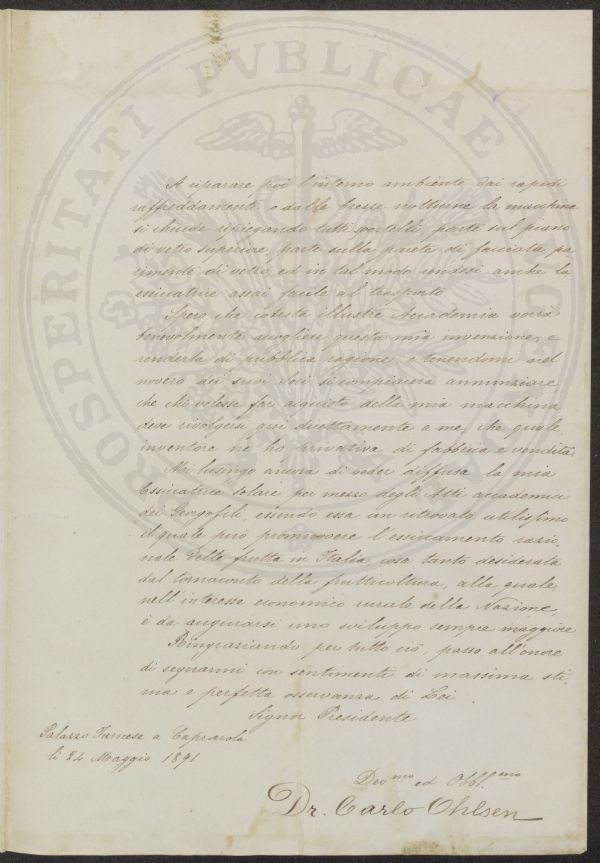 PROSPERITATI PVBLICAE
A riparare poi l'interno ambiente dai rapidi
raffreddamenti o dalle brezze notturne la macchina
si chiude ripiegando tutti portelli parte sul piano
di vetro superiore parte sulla parete di facciata pa
rimente di vetro ed in tal modo rendesi anche la
essicatrice assai facile al trasporto
Spero che cotesta illustre Accademia vorrà
benevolmente accogliere questa mia invenzione, e
renderla di pubblica ragione e tenendomi nel
novero dei suoi Soci si compiacerà annunziare
che chi volesse far acquisto della mia macchina
deve rivolgersi qui direttamente a me, che quale
inventore ne ho privativa di fabbrica e vendita.
Mi lusingo ancora di veder diffusa la mia
Essicatrice solare per mezzo degli Atti accademici
dei Georgofili, essendo essa un ritrovato utilissimo
il quale può promuovere l'essicamento razio
nale delle frutta in Italia cosa tanto desiderata
dal tornaconto della frutticoltura, alla quale,
nell'interesse economico rurale della Nazione,
è da augurarsi uno sviluppo sempre maggiore.
Ringraziando per tutto ciò, passo all'onore
di segnarmi con sentimenti di massima sti
ma e perfetta osservanza di Lei
Signor Presidente
Palazzo Farnese a Caprarola
li 24 Maggio 1891
Dev.mo ed Obbl.mo
Dr. Carlo Ohlsen